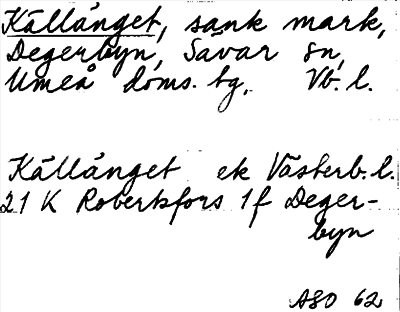 Källänget, sank mark,
Degerbyn, Sävar sn,
Umeå doms. bg, Vb. l.
Källänget ek Västerb. l.
21 K Robertsfors 1 f Deger-
byn
ASO 62